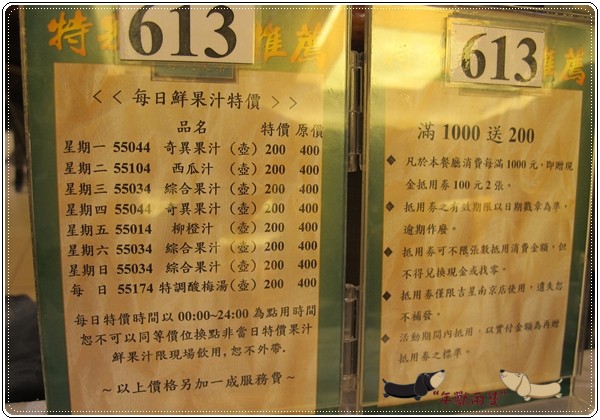 613
推薦
< < 每日鮮果汁特價 > >
品名 特價 原價
星期一 55044 奇異果汁 (壺) 200 400
星期二 55104 西瓜汁 (壺) 200 400
星期三 55034 綜合果汁 (壺) 200 400
星期四 55044 奇異果汁 (壺) 200 400
星期五 55014 柳橙汁 (壺) 200 400
星期六 55034 綜合果汁 (壺) 200 400
星期日 55034 綜合果汁 (壺) 200 400
每 日 55174 特調酸梅湯 (壺) 200 400
每日特價時間以 00:00~24:00 為點用時間
恕不可以同等價位換點非當日特價果汁
鮮果汁限現場飲用, 恕不外帶.
~ 以上價格另加一成服務費 ~
613
薦
滿 1000 送 200
◆ 凡於本餐廳消費每滿 1000 元,即贈現
金抵用券 100 元 2 張。
◆ 抵用券之有效期限以日期戳章為準,
逾期作廢。
◆ 抵用券可不限張數抵用消費金額,但
不得兌換現金或找零。
◆ 抵用券僅限吉星南京店使用,遺失恕
不補發。
◆ 活動期間內抵用,以實付金額為再贈
抵用券之標準。